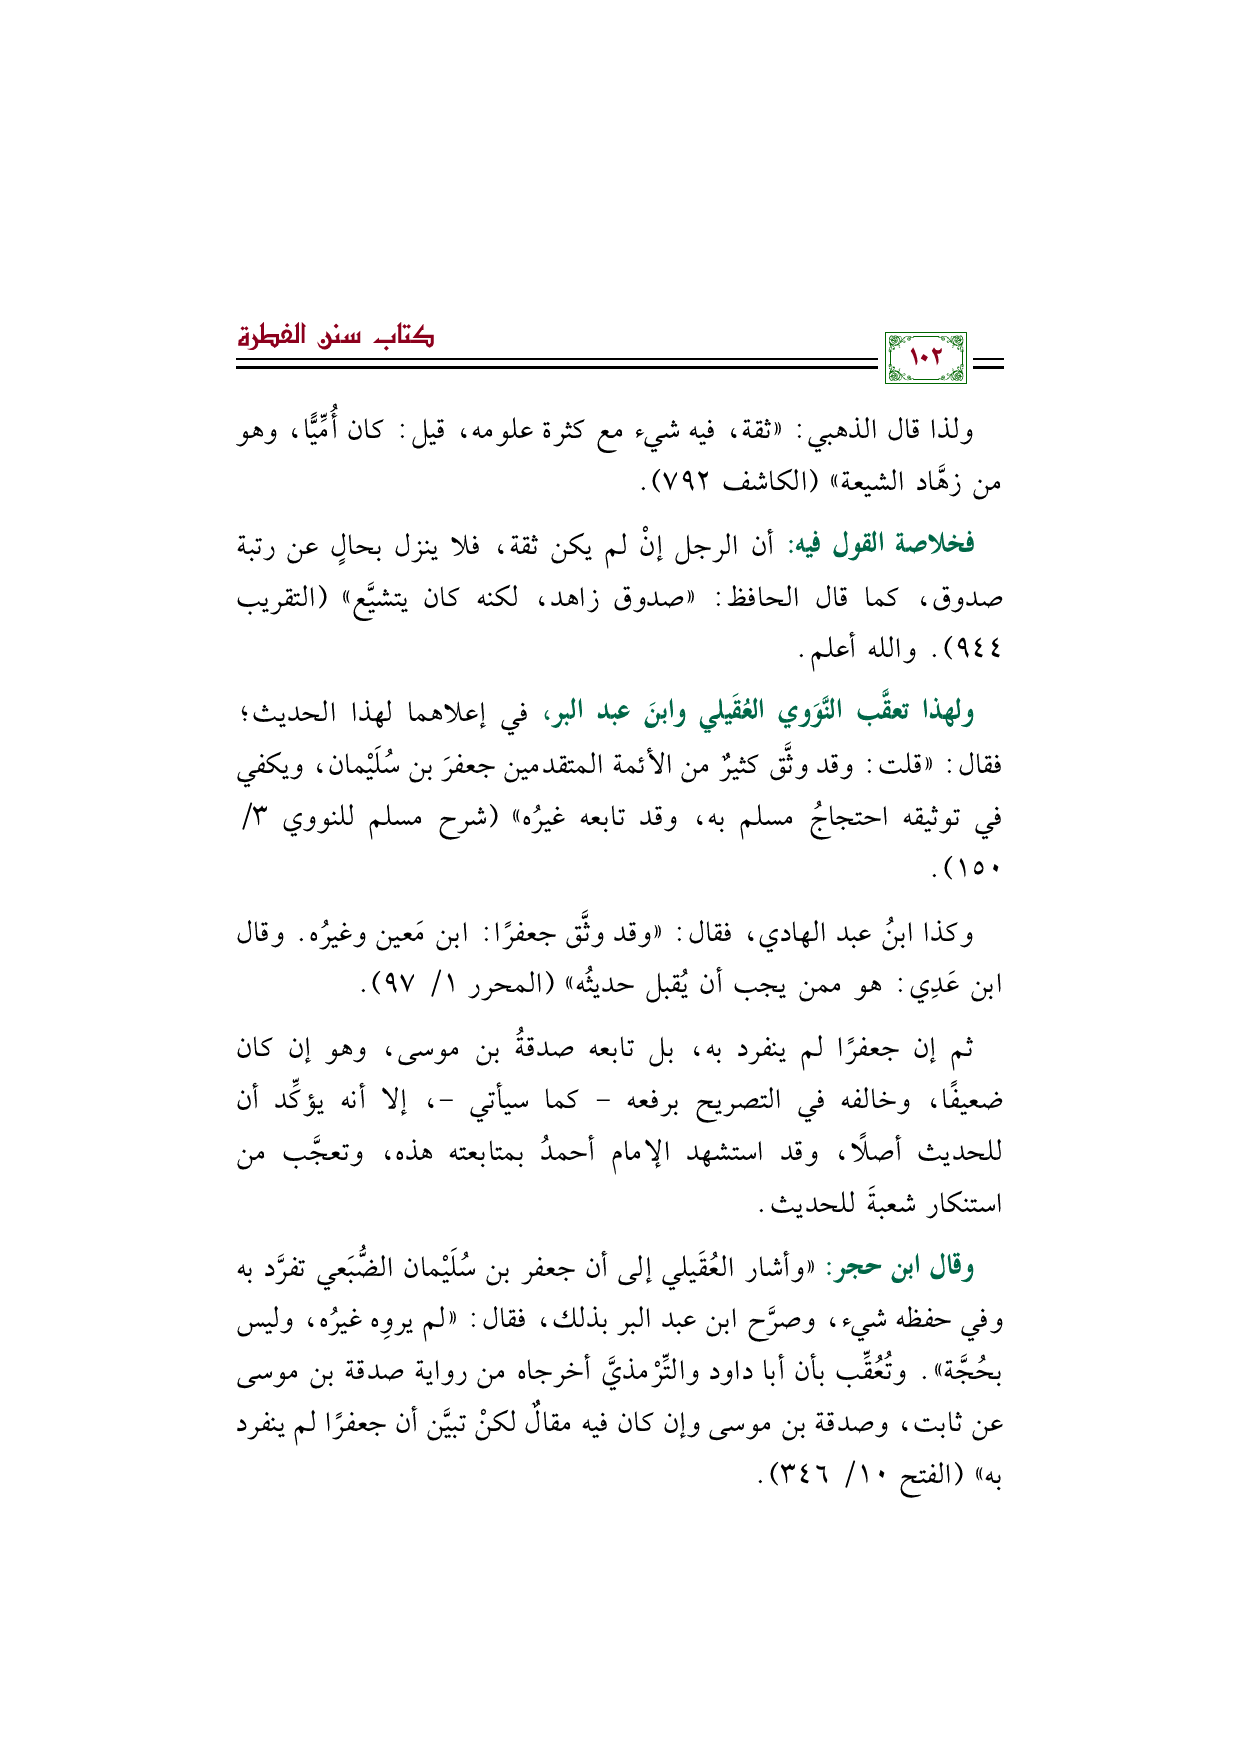 كتاب سنن الفطرة
١٠٢
ولذا قال الذهبي: «ثقة، فيه شيء مع كثرة علومه، قيل: كان أُمِّيًّا، وهو
من زهَّاد الشيعة» (الكاشف ٧٩٢).
فخلاصة القول فيه: أن الرجل إنْ لم يكن ثقة، فلا ينزل بحالٍ عن رتبة
صدوق، كما قال الحافظ: «صدوق زاهد، لكنه كان يتشيَّع» (التقريب
٩٤٤). والله أعلم.
ولهذا تعقَّب النَّوَوي العُقَيلي وابنَ عبد البر، في إعلاهما لهذا الحديث؛
فقال: «قلت: وقد وثَّق كثيرٌ من الأئمة المتقدمين جعفرَ بن سُلَيْمان، ويكفي
في توثيقه احتجاجُ مسلم به، وقد تابعه غيرُه» (شرح مسلم للنووي ٣/
١٥٠).
وكذا ابنُ عبد الهادي، فقال: «وقد وثَّق جعفرًا: ابن مَعين وغيرُه. وقال
ابن عَدِي: هو ممن يجب أن يُقبل حديثُه» (المحرر ١/ ٩٧).
ثم إن جعفرًا لم ينفرد به، بل تابعه صدقةُ بن موسى، وهو إن كان
ضعيفًا، وخالفه في التصريح برفعه – كما سيأتي –، إلا أنه يؤكِّد أن
للحديث أصلًا، وقد استشهد الإمام أحمدُ بمتابعته هذه، وتعجَّب من
استنكار شعبةَ للحديث.
وقال ابن حجر: «وأشار العُقَيلي إلى أن جعفر بن سُلَيْمان الضُّبَعي تفرَّد به
وفي حفظه شيء، وصرَّح ابن عبد البر بذلك، فقال: «لم يروِه غيرُه، وليس
بحُجَّة». وتُعُقِّب بأن أبا داود والتِّرْمذيَّ أخرجاه من رواية صدقة بن موسى
عن ثابت، وصدقة بن موسى وإن كان فيه مقالٌ لكنْ تبيَّن أن جعفرًا لم ينفرد
به» (الفتح ١٠/ ٣٤٦).